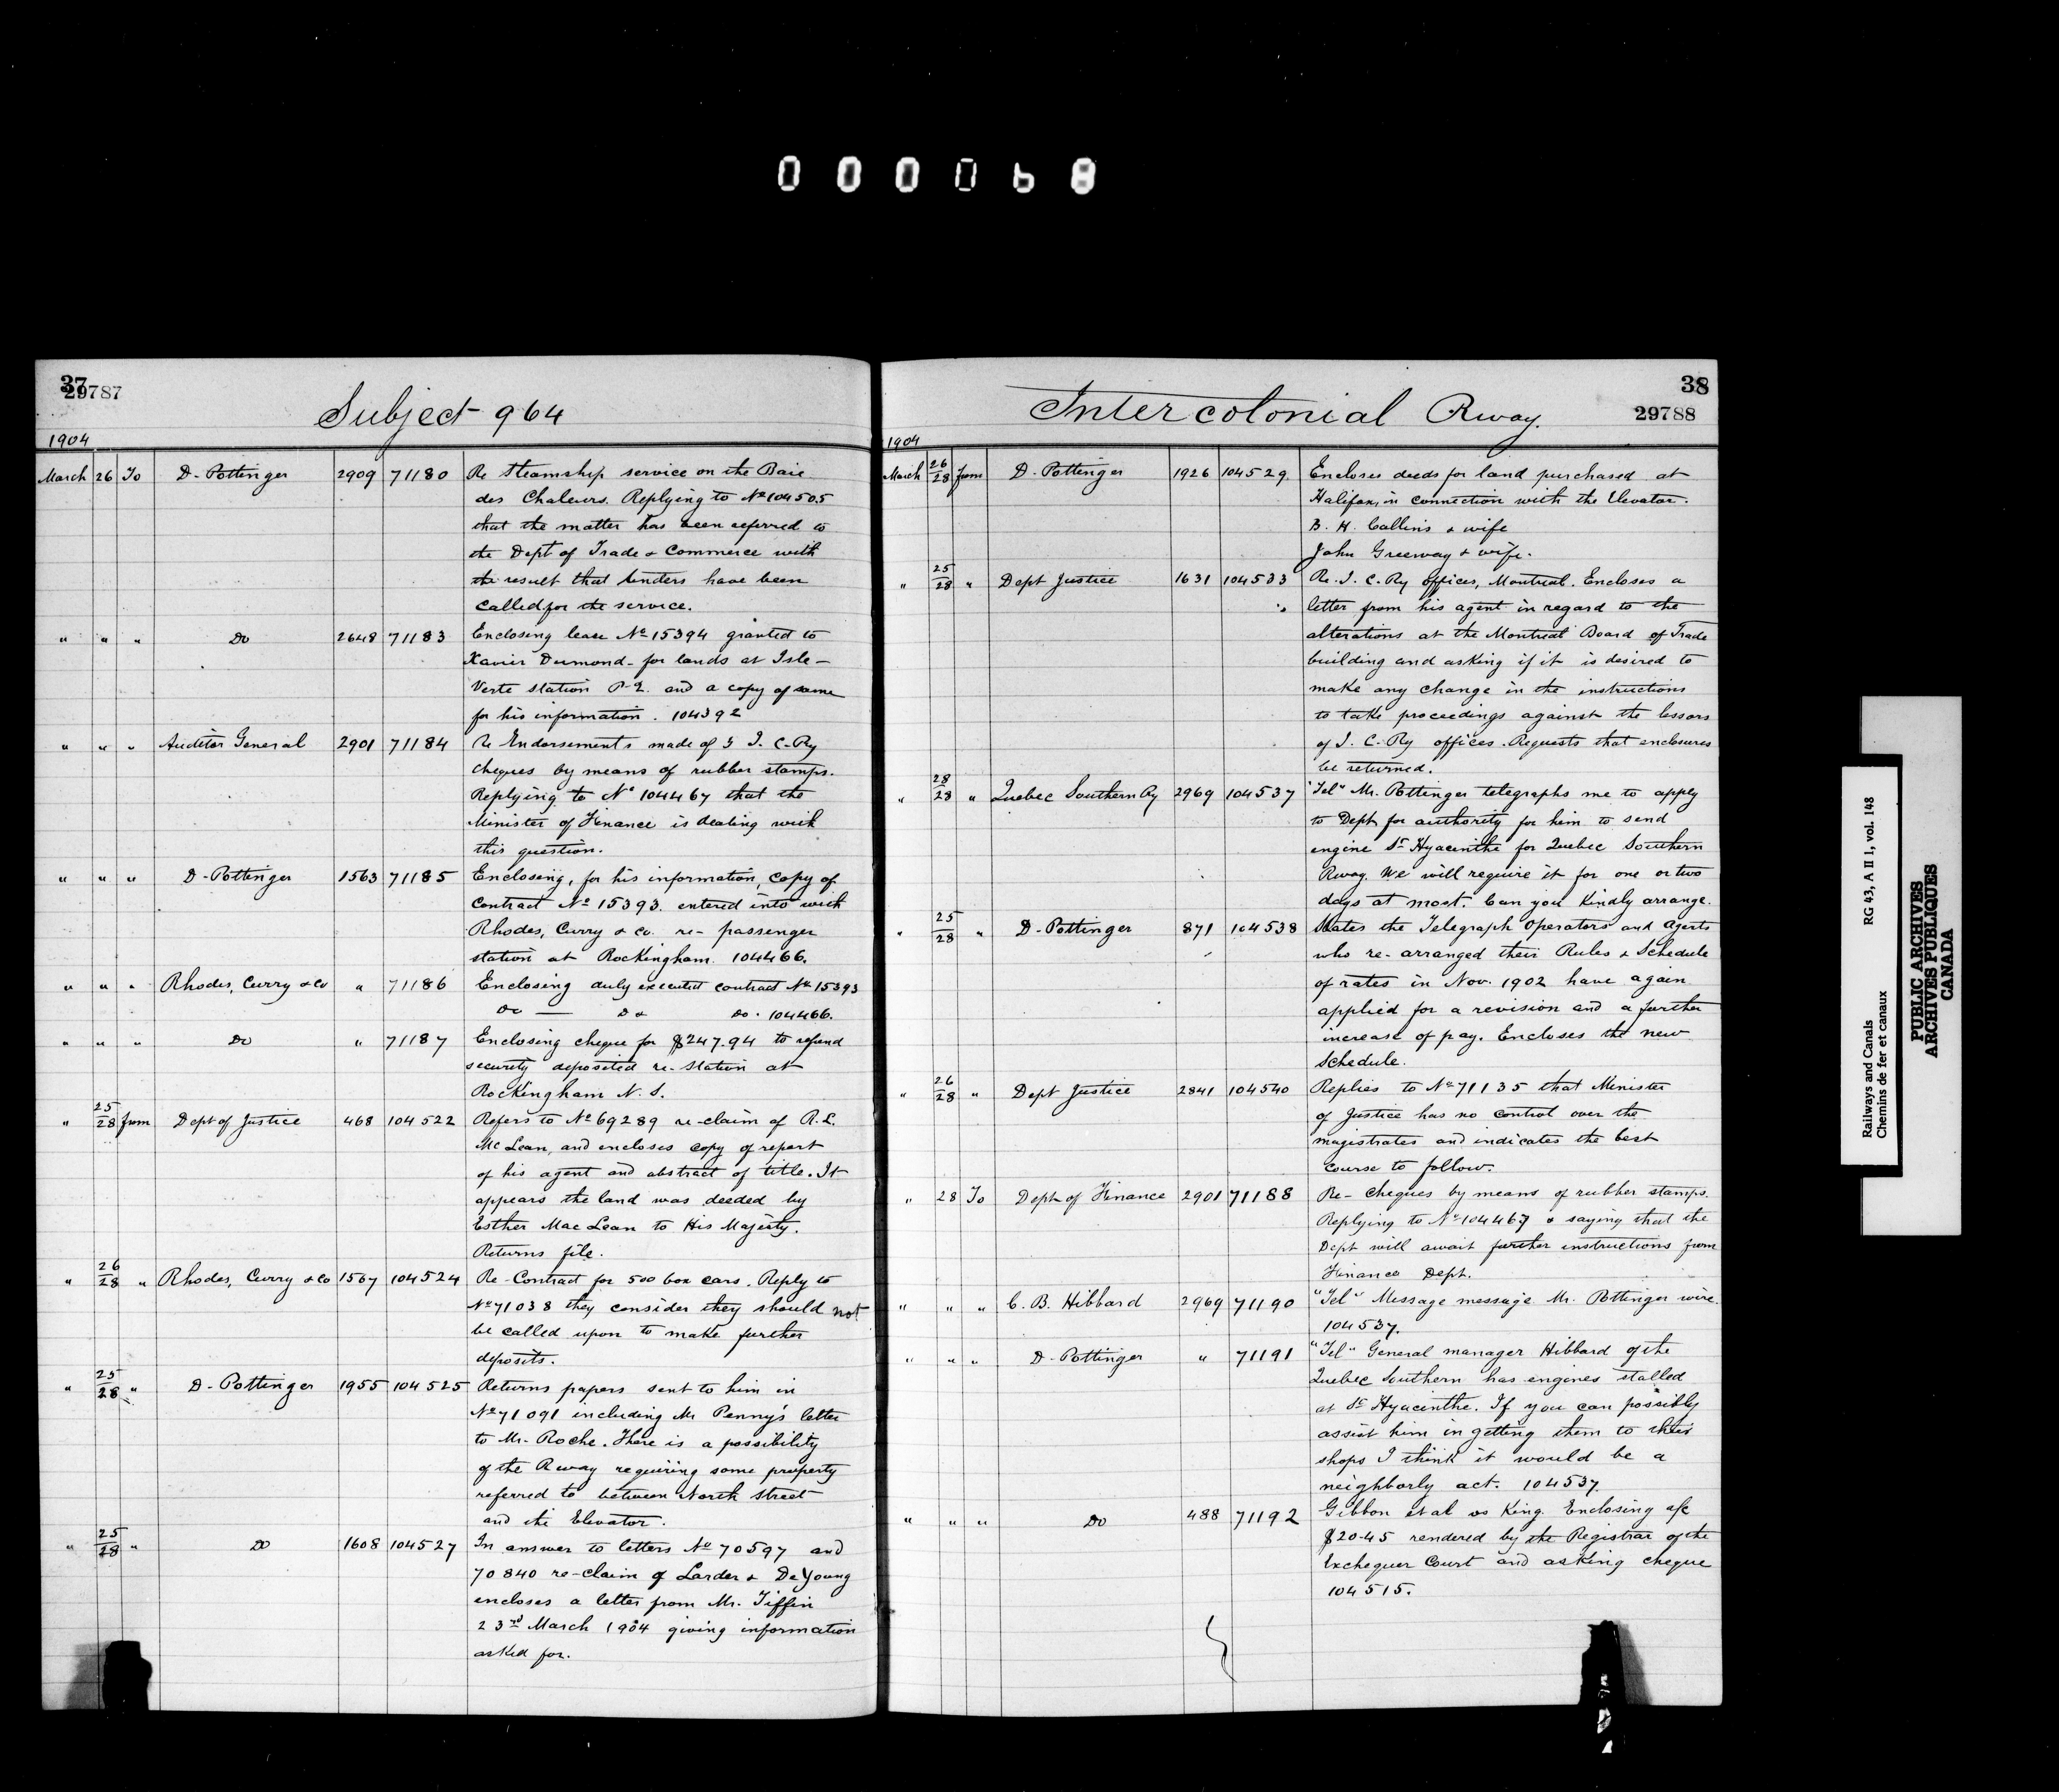 000068
37
29787
Subject 964
1904
March 26 To D. Pottinger 2909 71180 Re Steamship service on the Baie
des Chaleurs. Replying to No 104505
that the matter has been referred to
the Dept of Trade & Commerce with
the result that tenders have been
called for the service.
" " " Do 2648 71183 Enclosing lease No 15394 granted to
Xavier Dumond - for lands at Isle -
Verte Station P.Q. and a copy of same
for his information. 104392
" " " Auditor General 2901 71184 Re Endorsements made of I. C. Ry
cheques by means of rubber stamps.
Replying to No 104467 that the
Minister of Finance is dealing with
this question.
" " " D. Pottinger 1563 71185 Enclosing, for his information, copy of
contract No 15393 entered into with
Rhodes, Curry & Co. re- passenger
station at Rockingham. 104466.
" " " Rhodes, Curry & Co " 71186 Enclosing duly executed contract No 15393
Do — Do Do. 104466.
" " " Do " 71187 Enclosing cheque for $247.94 to refund
security deposited re-station at
Rockingham N. S.
" 25/28 from Dept of Justice 468 104522 Refers to No 69289 re-claim of R. L.
McLean, and encloses copy of report
of his agent and abstract of title. It
appears the land was deeded by
Esther MacLean to His Majesty.
Returns file.
" 26/28 " Rhodes, Curry & Co 1567 104524 Re-Contract for 500 box cars. Reply to
No 71038 they consider they should not
be called upon to make further
deposits.
" 25/28 " D. Pottinger 1955 104525 Returns papers sent to him in
No 71091 including Mr Penny's letter
to Mr. Roche. There is a possibility
of the Rway requiring some property
referred to between North Street
and the Elevator.
" 25/28 " Do 1608 104527 In answer to letters No 70597 and
70840 re-claim of Larder & DeYoung
encloses a letter from Mr. Tiffin
23rd March 1904 giving information
asked for.
38
29788
Intercolonial Rway.
1904
March 26/28 from D. Pottinger 1926 104529 Encloses deeds for land purchased at
Halifax, in connection with the Elevator.
B. H. Collins & wife
John Greenway & wife.
" 25/28 " Dept Justice 1631 104533 Re. I. C. Ry offices, Montreal. Encloses a
letter from his agent in regard to the
alterations at the Montreal Board of Trade
building and asking if it is desired to
make any change in the instructions
to take proceedings against the lessors
of I. C. Ry offices. Requests that enclosures
be returned.
" 28/28 " Quebec Southern Ry 2969 104537 "Tel" Mr. Pottinger telegraphs me to apply
to Dept for authority for him to send
engine St Hyacinthe for Quebec Southern
Rway. We will require it for one or two
days at most. Can you kindly arrange.
" 25/28 " D. Pottinger 871 104538 States the Telegraph Operators and Agents
who re-arranged their Rules & Schedule
of rates in Nov. 1902 have again
applied for a revision and a further
increase of pay. Encloses the new
schedule.
" 26/28 " Dept Justice 2841 104540 Replies to No 71135 that Minister
of Justice has no control over the
magistrates and indicates the best
course to follow.
" 28 To Dept of Finance 2901 71188 Re- cheques by means of rubber stamps.
Replying to No 104467 & saying that the
Dept will await further instructions from
Finance Dept.
" " " C. B. Hibbard 2969 71190 "Tel" Message message Mr. Pottinger wire.
104537.
" " " D. Pottinger " 71191 "Tel" General manager Hibbard of the
Quebec Southern has engines stalled
at St Hyacinthe. If you can possibly
assist him in getting them to their
shops I think it would be a
neighborly act. 104537.
" " " Do 488 71192 Gibbon et al vs King. Enclosing a/c
$20.45 rendered by the Registrar of the
Exchequer Court and asking cheque
104515.
Railways and Canals RG 43, A II 1, vol. 148
Chemins de fer et canaux
PUBLIC ARCHIVES
ARCHIVES PUBLIQUES
CANADA